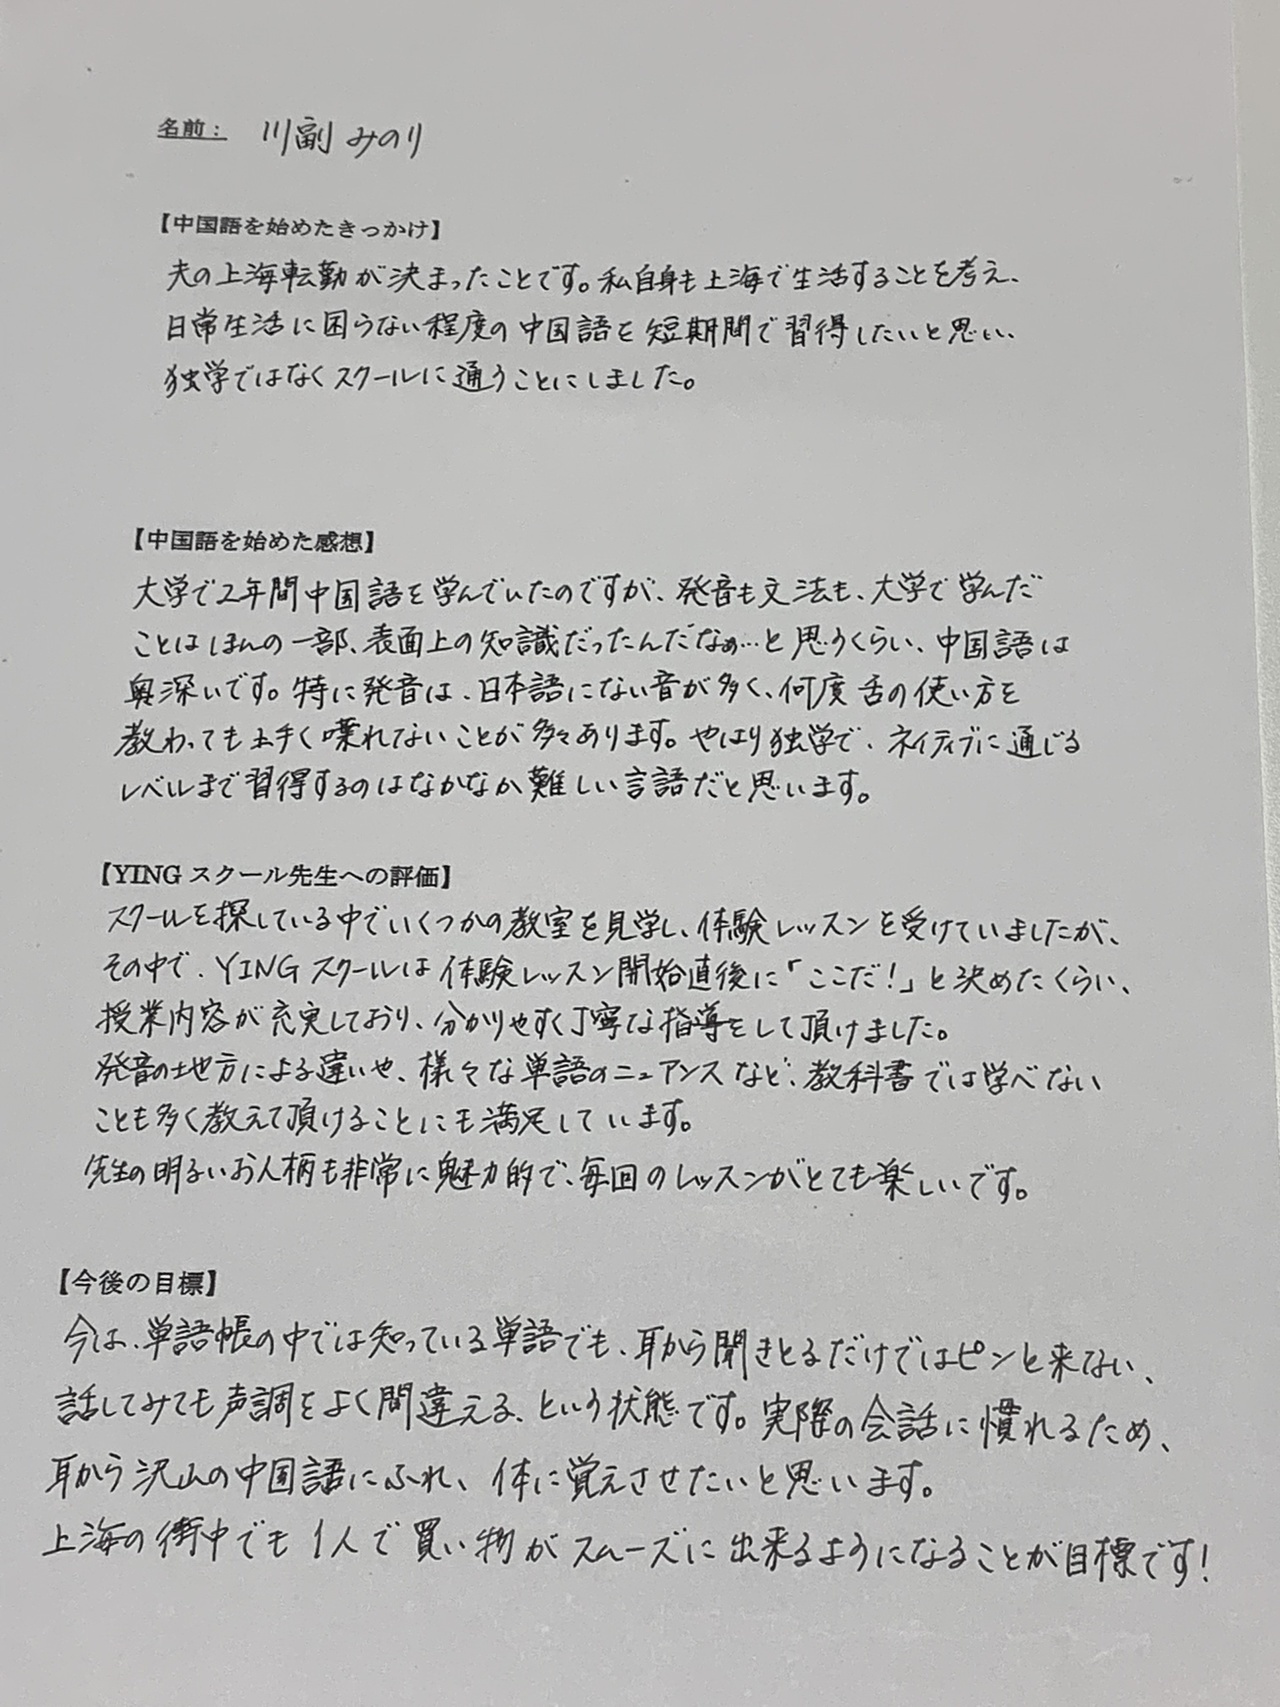 名前： 川副 みのり
【中国語を始めたきっかけ】
夫の上海転勤が決まったことです。私自身も上海で生活することを考え、
日常生活に困らない程度の中国語を短期間で習得したいと思い、
独学ではなくスクールに通うことにしました。
【中国語を始めた感想】
大学で2年間中国語を学んでいたのですが、発音も文法も、大学で学んだ
ことはほんの一部、表面上の知識だったんだなぁ…と思うくらい、中国語は
奥深いです。特に発音は、日本語にない音が多く、何度舌の使い方を
教わっても上手く喋れないことが多々あります。やはり独学で、ネイティブに通じる
レベルまで習得するのはなかなか難しい言語だと思います。
【YING スクール先生への評価】
スクールを探している中でいくつかの教室を見学し、体験レッスンを受けていましたが、
その中で、YINGスクールは体験レッスン開始直後に「ここだ！」と決めたくらい、
授業内容が充実しており、分かりやすく丁寧な指導をして頂けました。
発音の地方による違いや、様々な単語のニュアンスなど、教科書では学べない
ことも多く教えて頂けることにも満足しています。
先生の明るいお人柄も非常に魅力的で、毎回のレッスンがとても楽しいです。
【今後の目標】
今は、単語帳の中では知っている単語でも、耳から聞きとるだけではピンと来ない、
話してみても声調をよく間違える、という状態です。実際の会話に慣れるため、
耳から沢山の中国語にふれ、体に覚えさせたいと思います。
上海の街中でも1人で買い物がスムーズに出来るようになることが目標です！